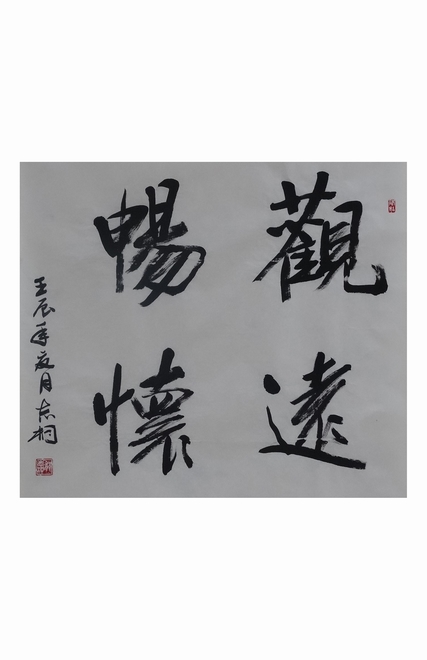 觀遠
暢懷
壬辰年夏月志桐